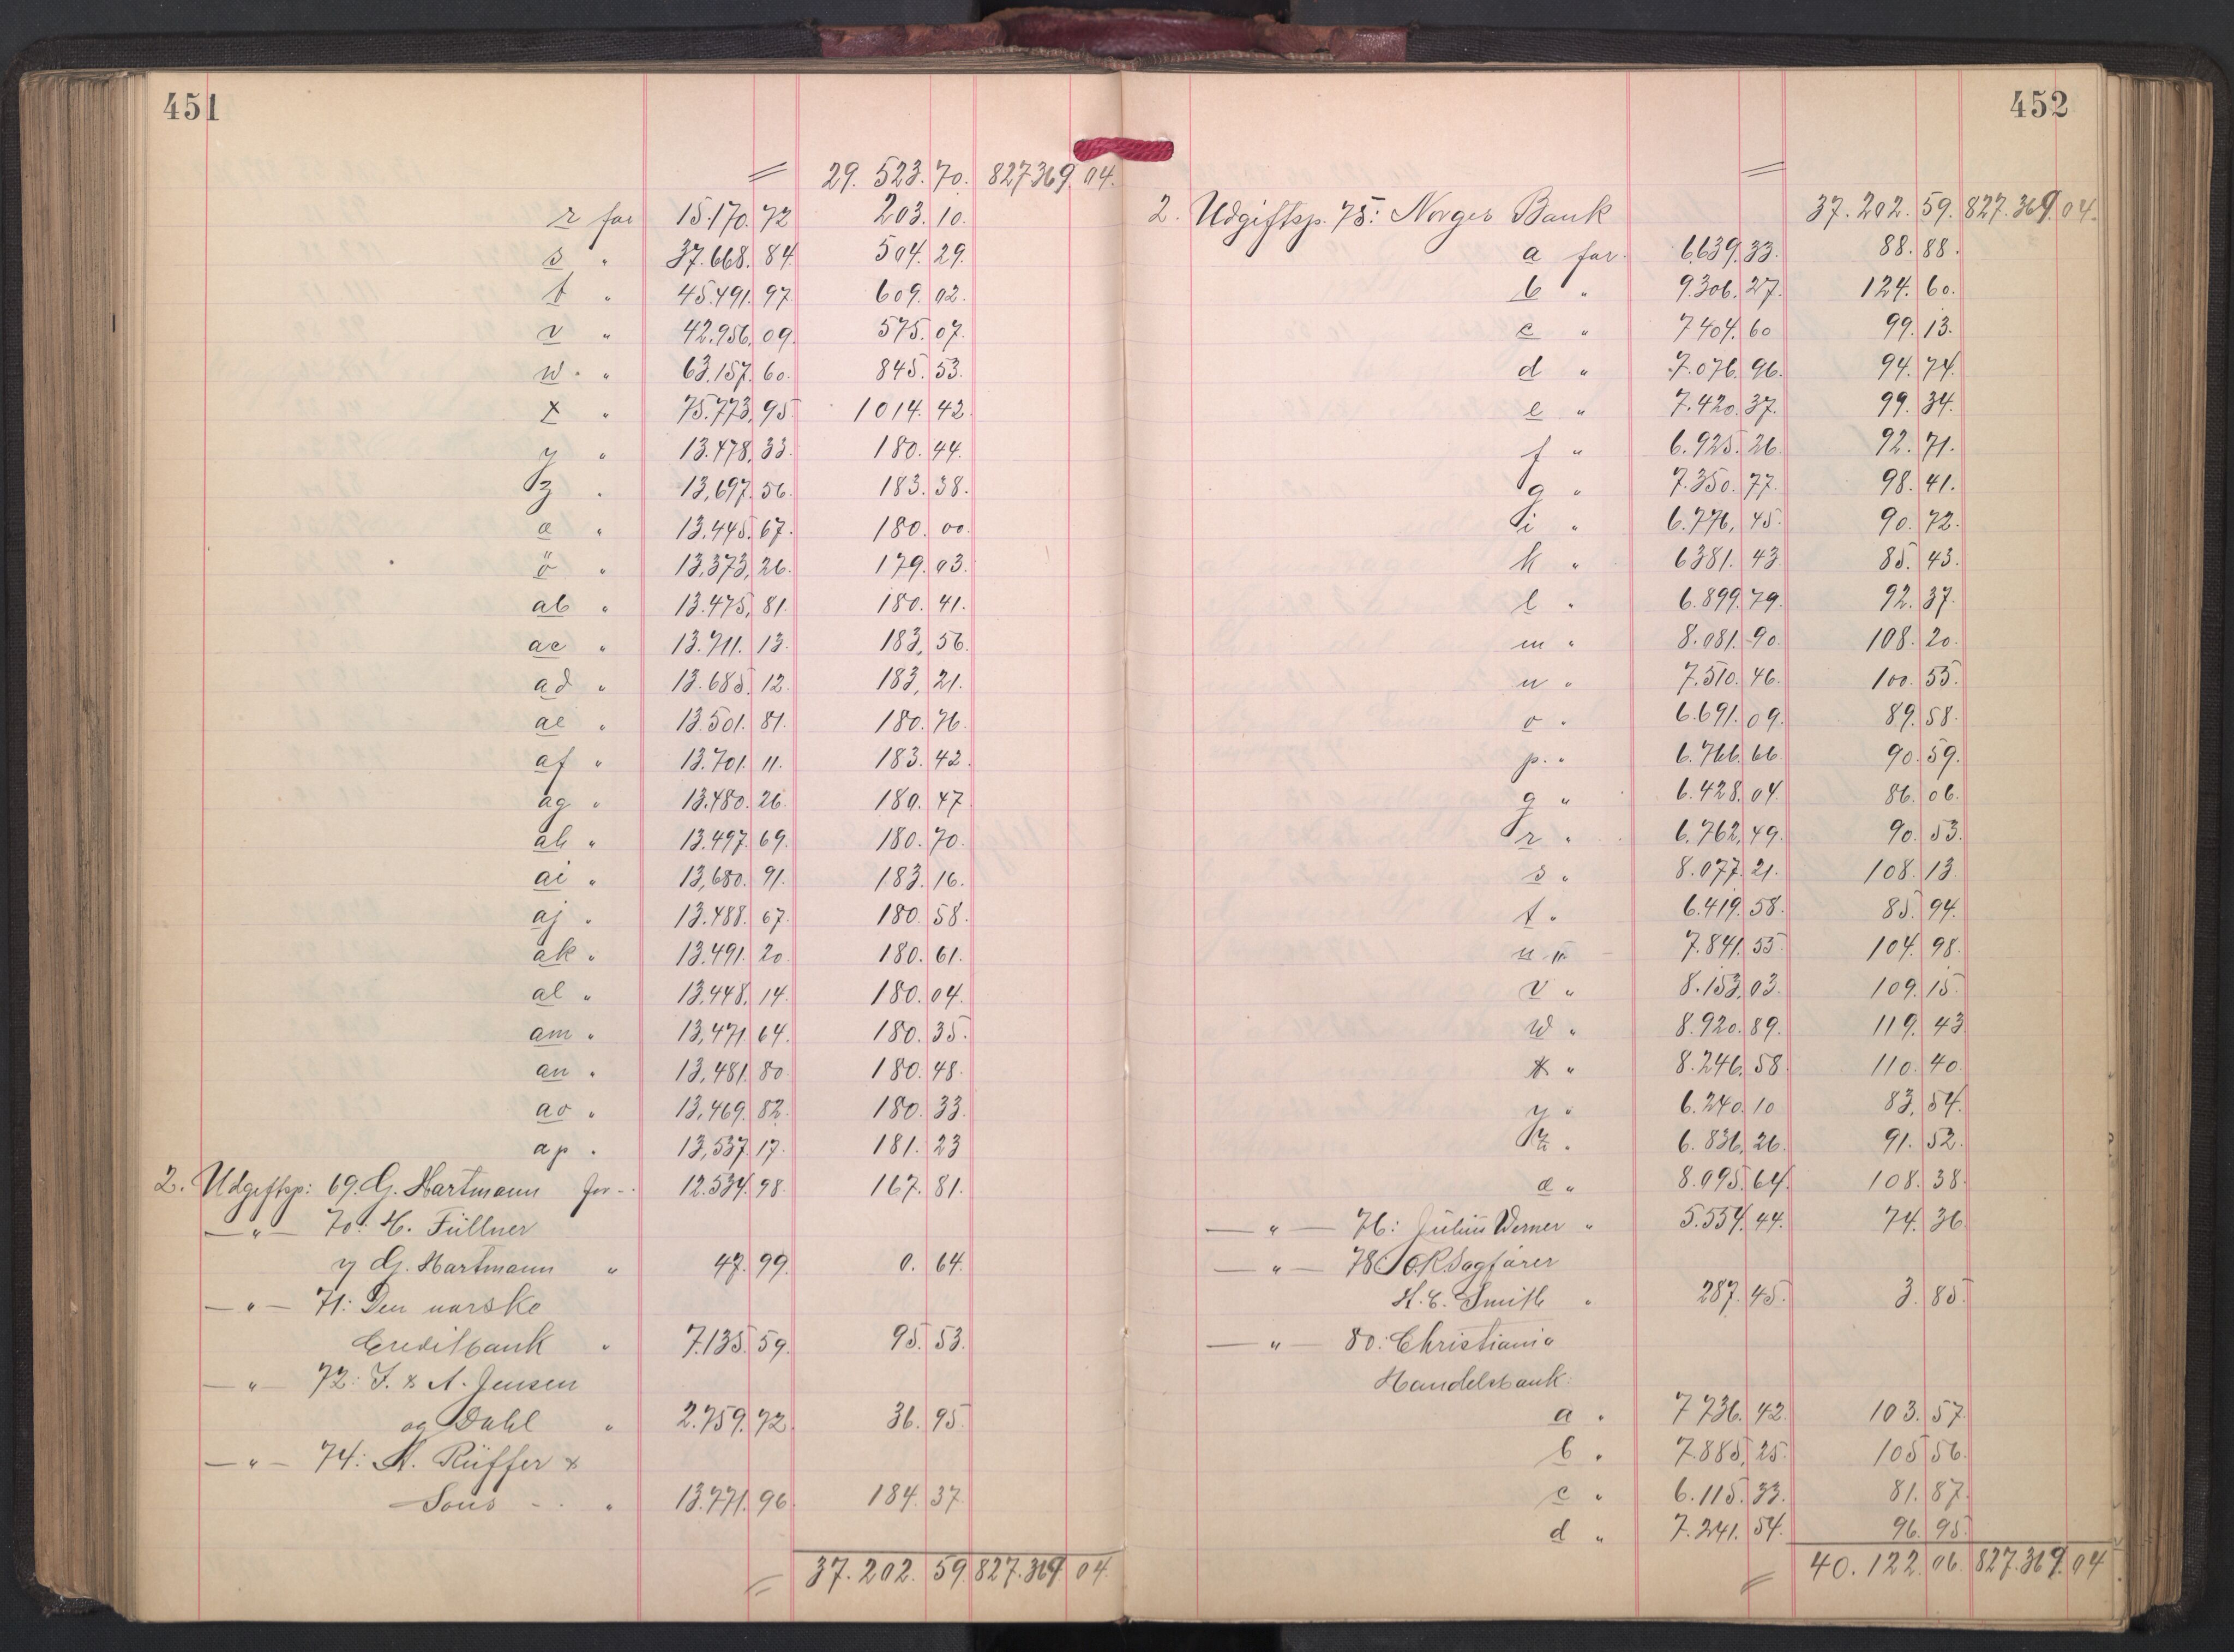 451
= 29.523.70. 827369.04.
r for 15.170.72 203.10.
s " 37.668.84. 504.29.
t " 45.491.97. 609.02.
v " 42.956.09. 575.07.
w. " 63.157.60. 845.53.
x " 75.773.95. 1014.42
y " 13.478.33. 180.44.
z " 13,697.56. 183.38.
a " 13.445.67. 180.00.
ö " 13,373,26. 179.03.
ab " 13.475,81. 180.41.
ac " 13.711.13. 183,56.
ad " 13.685.12. 183,21.
ae " 13.501.81. 180.76.
af " 13.701.11. 183.42.
ag " 13.480.26. 180.47
ah " 13.497.69. 180.70.
ai " 13,680.91. 183.16.
aj " 13.488.67. 180.58.
ak " 13.491.20 180.61.
al " 13,448.14. 180.04.
am " 13,471.64. 180.35.
an " 13,481.80. 180.48.
ao " 13,469.82. 180.33.
ap " 13,537.17. 181.23
2. Udgiftsp: 69. G. Hartmann for - 12.534.98. 167.81.
— " — 70: H. Füllner
y G. Hartmann " 47.99. 0.64.
— " — 71: Den norske
Creditbank " 7.135.59. 95.53.
— " — 72: I. & A. Jensen
og Dahl " 2.759.72. 36.95.
— " — 74: A. Rüffer &
Sons - . " 13.771.96. 184.37
= 37.202.59. 827.369.04.
452
=
2. Udgiftsp. 75: Norges Bank 37.202.59. 827.369.04.
a for. 6,639.33. 88.88.
b " 9.306.27. 124.60.
c " 7404.60 99.13.
d " 7.076.96. 94.74.
e " 7.420.37. 99.34.
f " 6.925.26. 92.71.
g " 7.350.77. 98.41.
i " 6.776,45. 90.72.
k " 6381.43. 85.43.
l " 6.899.79. 92.37.
m " 8.081.90. 108.20.
n " 7.510.46. 100.55.
o " 6.691.09. 89.58.
p. " 6.766.66. 90.59.
q " 6.428.04. 86.06.
r " 6.762,49. 90.53.
s " 8.077.21. 108.13.
t " 6.419.58. 85.94.
u " 7.841.55. 104.98.
v " 8.153,03. 109.15.
w " 8.920.89. 119.43
x " 8.246.58. 110.40.
y " 6.240.10 83,54.
z " 6.836,26. 91.52.
a " 8.095.64. 108.38.
— " — 76: Julius Werner " 5.554.44. 74.36
— " — 78: O.R.Sagfører
H. C. Smith " 287.45. 3.85.
— " — 80: Christiania
Handelsbank:
a " 7736.42. 103.57.
b " 7.885,25. 105.56.
c " 6.115.33. 81.87.
d " 7.241.54. 96.95.
= 40.122.06. 827.369.04